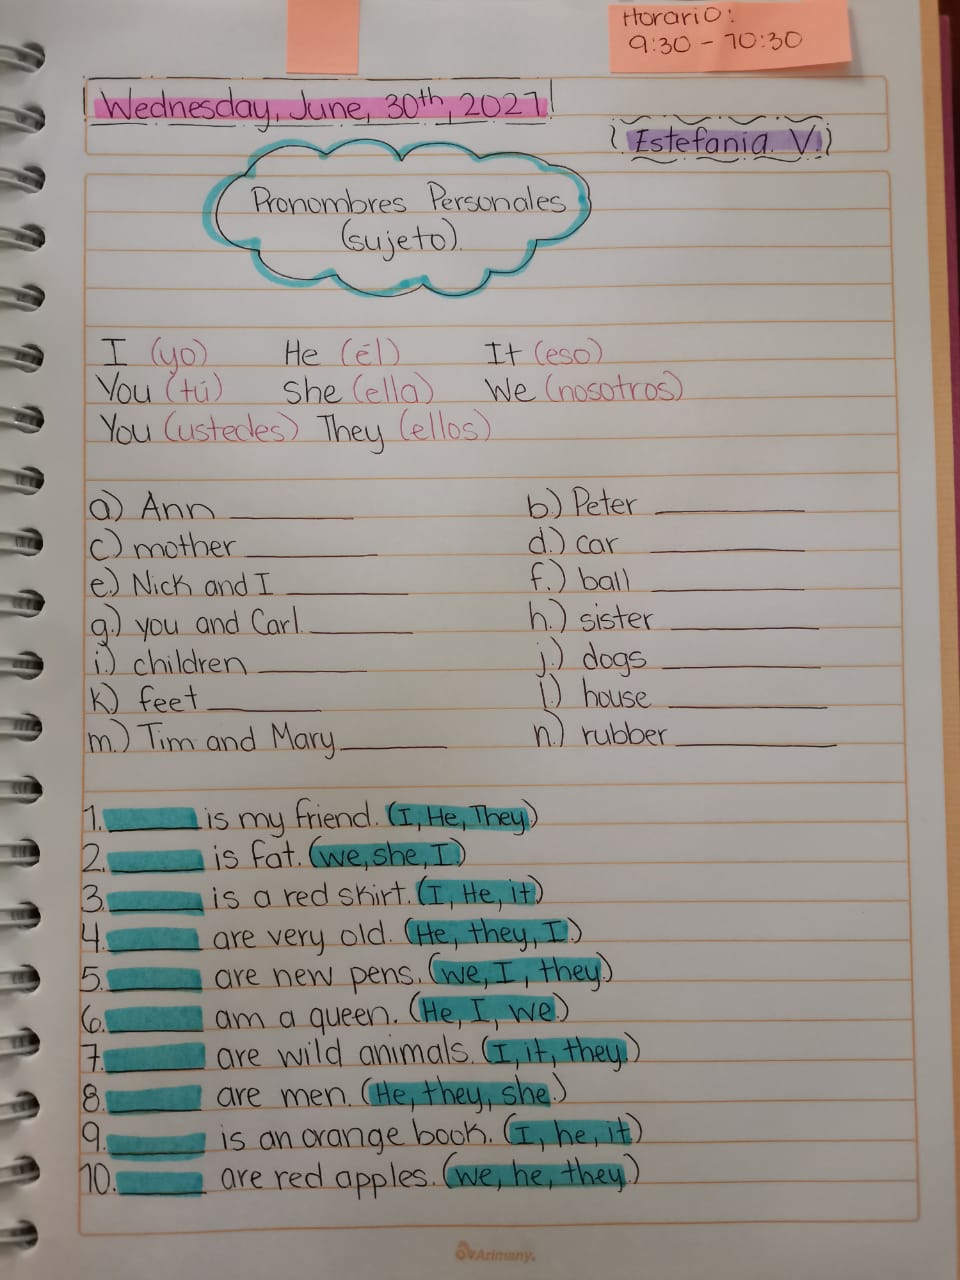 Horario:
9:30 - 10:30
Wednesday, June, 30th, 2021
Estefania. V.
Pronombres Personales
(sujeto).
I (yo) He (él) It (eso)
You (tú) She (ella) We (nosotros)
You (ustedes) They (ellos)
a) Ann ______ b.) Peter ______
c) mother ______ d.) car ______
e) Nick and I ______ f.) ball ______
g.) you and Carl. ______ h.) sister ______
i.) children ______ j.) dogs ______
k) feet ______ l.) house ______
m.) Tim and Mary ______ n.) rubber ______
1. ______ is my friend. (I, He, They.)
2. ______ is fat. (we, she, I.)
3. ______ is a red skirt. (I, He, it)
4. ______ are very old. (He, they, I.)
5. ______ are new pens. (we, I, they.)
6. ______ am a queen. (He, I, we.)
7. ______ are wild animals. (I, it, they.)
8. ______ are men. (He, they, she.)
9. ______ is an orange book. (I, he, it)
10. ______ are red apples. (we, he, they.)
Arimany.